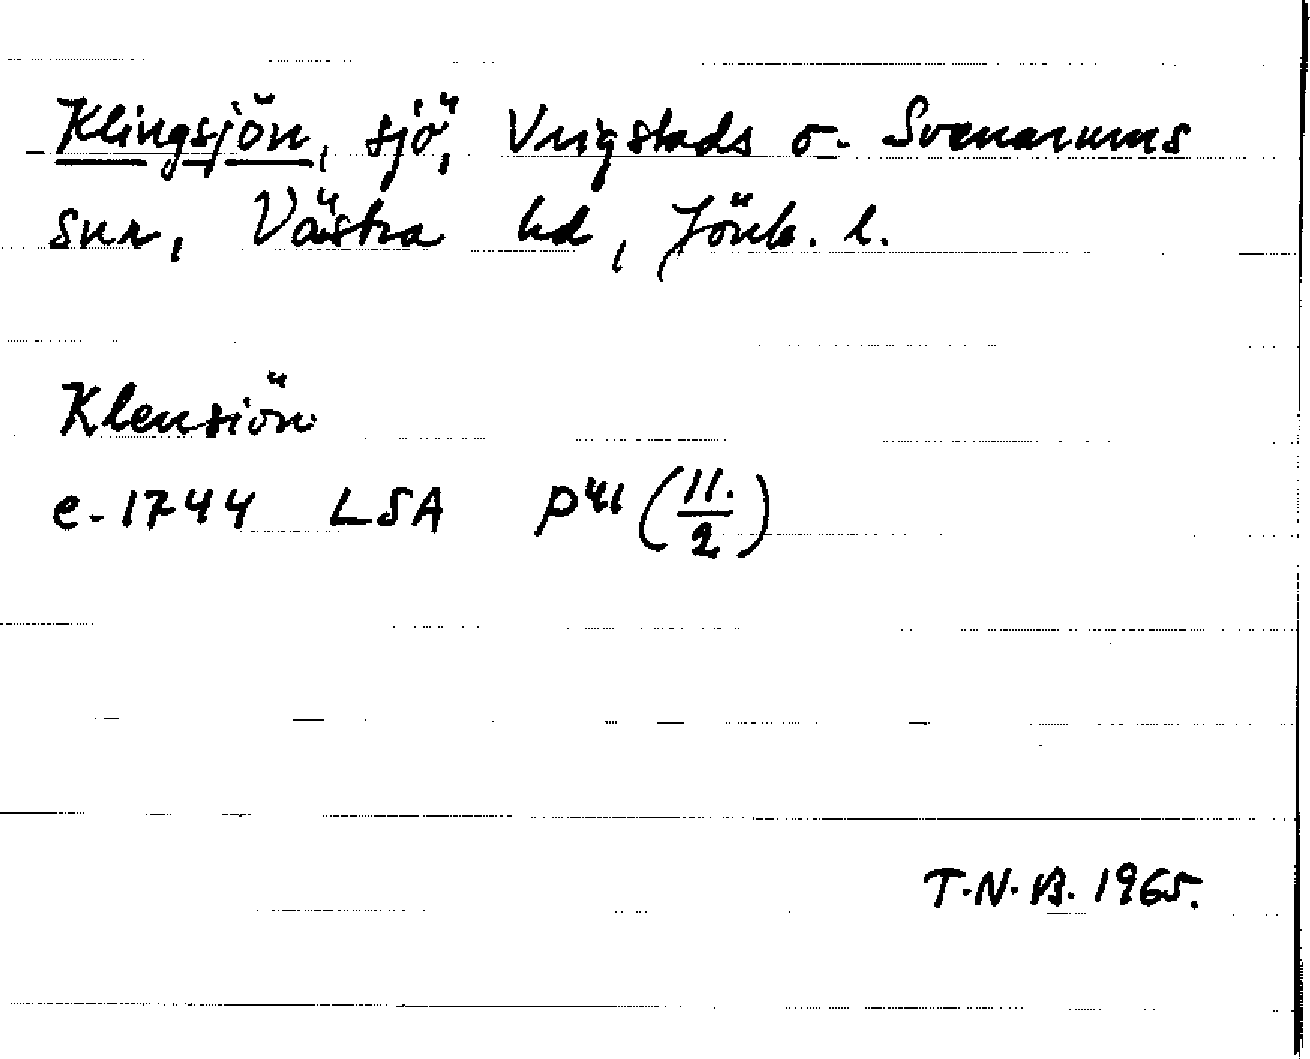 Klingsjön, sjö, Vrigstads o. Svenarums
snr, Västra hd, Jönk. l.
Klensiön
e. 1744 LSA P41 (11./2)
T.N.B. 1965.